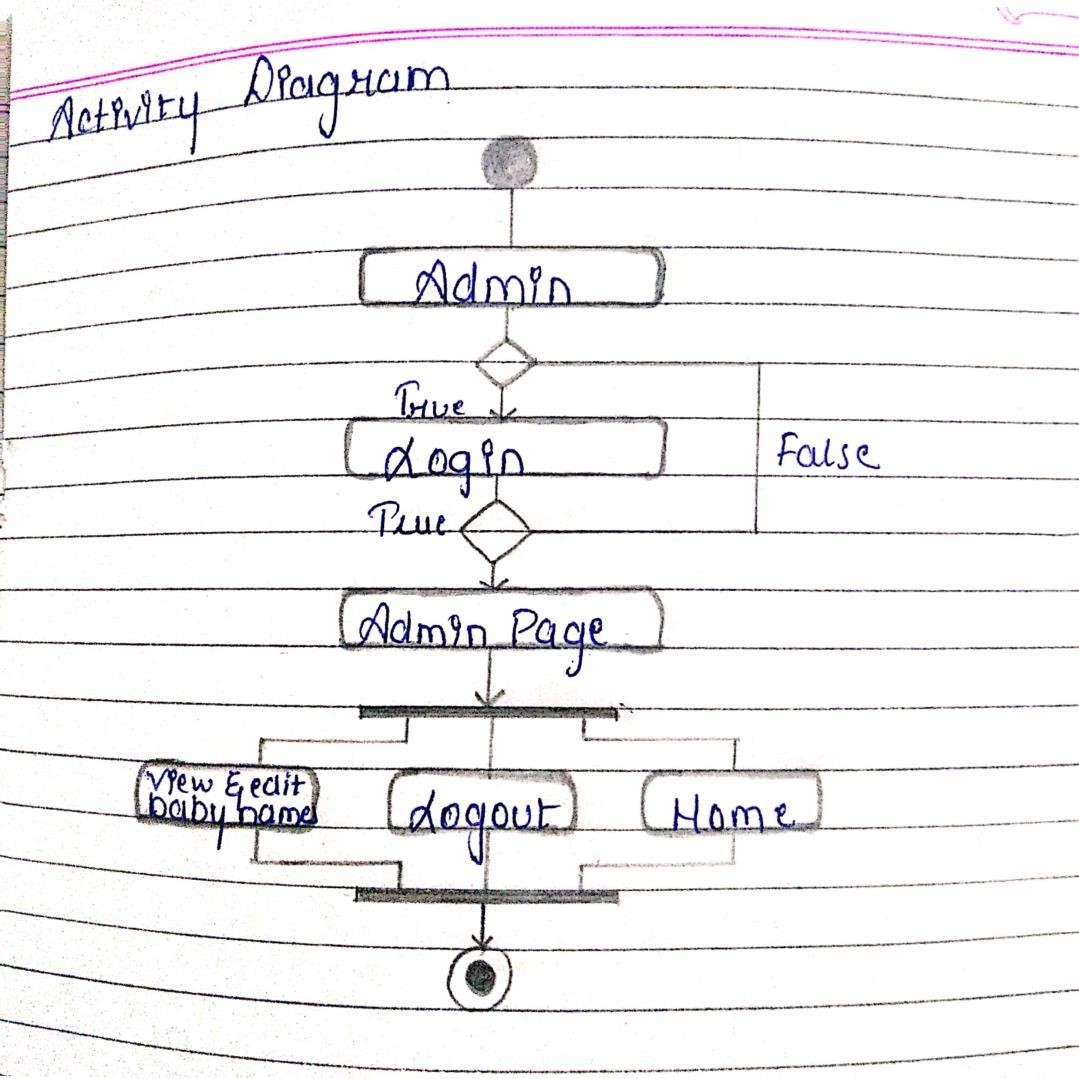 Activity Diagram
Admin
True
Login
False
True
Admin Page
View & edit
baby name
Logout
Home